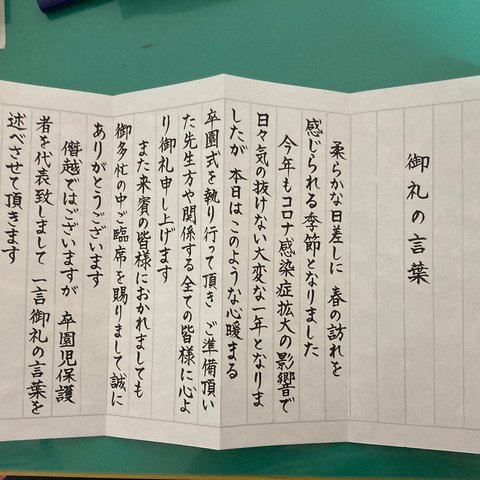 御礼の言葉
柔らかな日差しに 春の訪れを
感じられる季節となりました
今年もコロナ感染症拡大の影響で
日々気の抜けない大変な一年となりま
したが 本日は このような心暖まる
卒園式を執り行って頂き ご準備頂い
た先生方や関係する全ての皆様に心よ
り御礼申し上げます
また来賓の皆様におかれましても
御多忙の中ご臨席を賜りまして誠に
ありがとうございます
僭越ではございますが 卒園児保護
者を代表致しまして 一言 御礼の言葉を
述べさせて頂きます